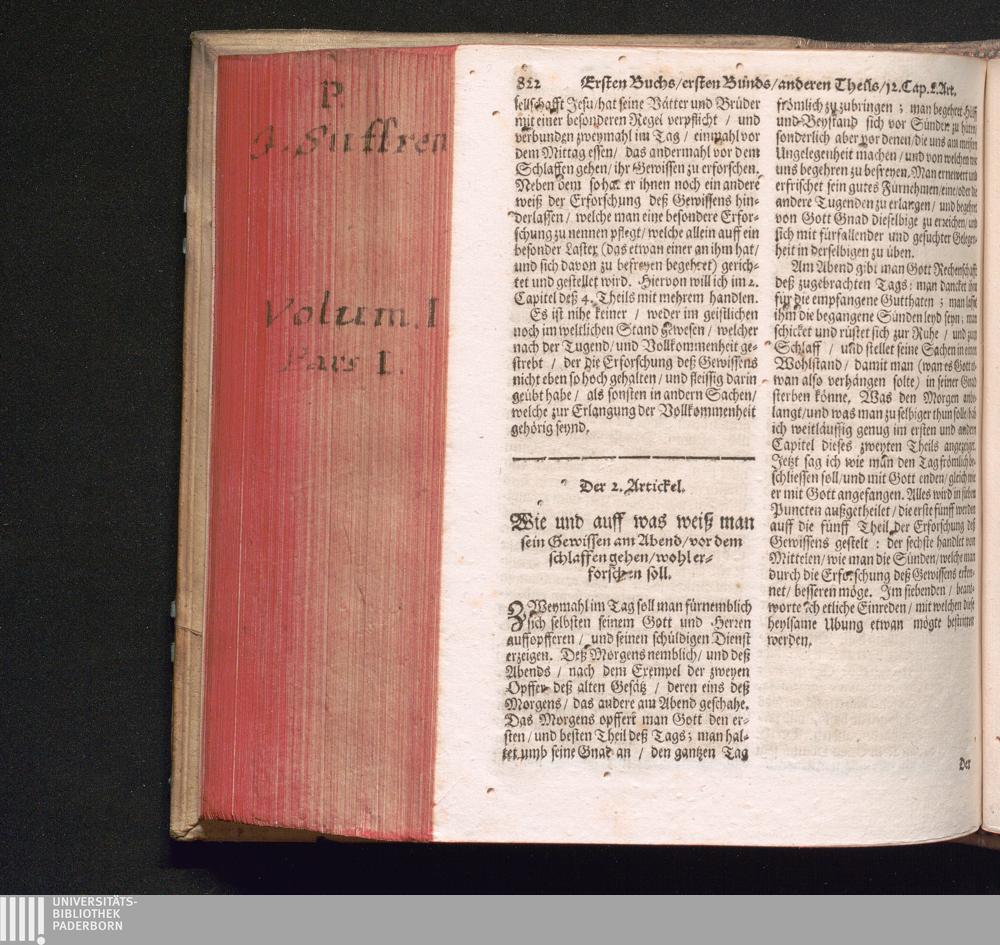 P.
J. Suffren
Volum. I
Pars I.
822 Ersten Buchs/ersten Bunds/anderen Theils/12.Cap.2.Art.
sellschafft Jesu/hat seine Vätter und Brüder
mit einer besonderen Regel verpflicht / und
verbunden zweymahl im Tag / einmahl vor
dem Mittag essen/ das andermahl vor dem
Schlaffen gehen/ ihr Gewissen zu erforschen.
Neben dem so hat er ihnen noch ein andere
weiß der Erforschung deß Gewissens hin-
derlassen / welche man eine besondere Erfor-
schung zu nennen pflegt/ welche allein auff ein
besonder Laster (das etwan einer an ihm hat/
und sich davon zu befreyen begehret) gerich-
tet und gestellet wird. Hiervon will ich im 2.
Capitel deß 4. Theils mit mehrem handlen.
Es ist nihe keiner / weder im geistlichen
noch im weltlichen Stand gewesen / welcher
nach der Tugend/ und Vollkommenheit ge-
strebt / der die Erforschung deß Gewissens
nicht eben so hoch gehalten / und fleissig darin
geübt habe / als sonsten in andern Sachen/
welche zur Erlangung der Vollkommenheit
gehörig seynd.
Der 2. Artickel.
Wie und auff was weiß man
sein Gewissen am Abend/vor dem
schlaffen gehen/wohl er-
forschen soll.
ZWeymahl im Tag soll man fürnemblich
sich selbsten seinem Gott und Herren
auffopfferen / und seinen schüldigen Dienst
erzeigen. Deß Morgens nemblich/ und deß
Abends / nach dem Exempel der zweyen
Opffer deß alten Gesätz / deren eins deß
Morgens/ das andere am Abend geschahe.
Das Morgens opffert man Gott den er-
sten / und besten Theil deß Tags; man hal-
tet umb seine Gnad an / den gantzen Tag
frömlich zu zubringen ; man begehret Hilff
und Beystand sich vor Sünden zu hüten
sonderlich aber vor denen/die uns am meisten
Ungelegenheit machen / und von welchen wir
uns begehren zu befreyen. Man ernewert und
erfrischet sein gutes Fürnehmen/eine/oder die
andere Tugenden zu erlangen / und begehrt
von Gott Gnad dieselbige zu erreichen/ und
sich mit fürfallender und gesuchter Gelegen-
heit in derselbigen zu üben.
Am Abend gibt man Gott Rechenschafft
deß zugebrachten Tags: man dancket ihm
für die empfangene Gutthaten ; man lasset
ihm die begangene Sünden leyd seyn; man
schicket und rüstet sich zur Ruhe / und zum
Schlaff / und stellet seine Sachen in einen
Wohlstand / damit man (wan es Gott et-
wan also verhängen solte) in seiner Gnad
sterben könne. Was den Morgen anbe-
langt/und was man zu selbiger thun solle/hab
ich weitläuffig genug im ersten und andern
Capitel dieses zweyten Theils angezeigt.
Jetzt sag ich wie man den Tag frömlich be-
schliessen soll/und mit Gott enden/ gleich wie
er mit Gott angefangen. Alles wird in sieben
Puncten außgetheilet / die erste fünff werden
auff die fünff Theil der Erforschung deß
Gewissens gestelt : der sechste handlet von
Mittelen/ wie man die Sünden/ welche man
durch die Erforschung deß Gewissens erken-
net/ besseren möge. Im siebenden / beant-
worte ich etliche Einreden / mit welchen diese
heylsame Ubung etwan mögte bestritten
werden.
Der
UNIVERSITÄTS-
BIBLIOTHEK
PADERBORN